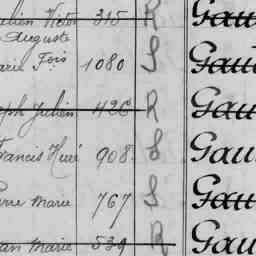 Victor 315 R Gau
Auguste
arie Fois 1080 S Gau
eph Julien 426 R Gau
Francis Hué 908 S Gau
erre Marie 767 S Gau
an Marie 539 R Gau